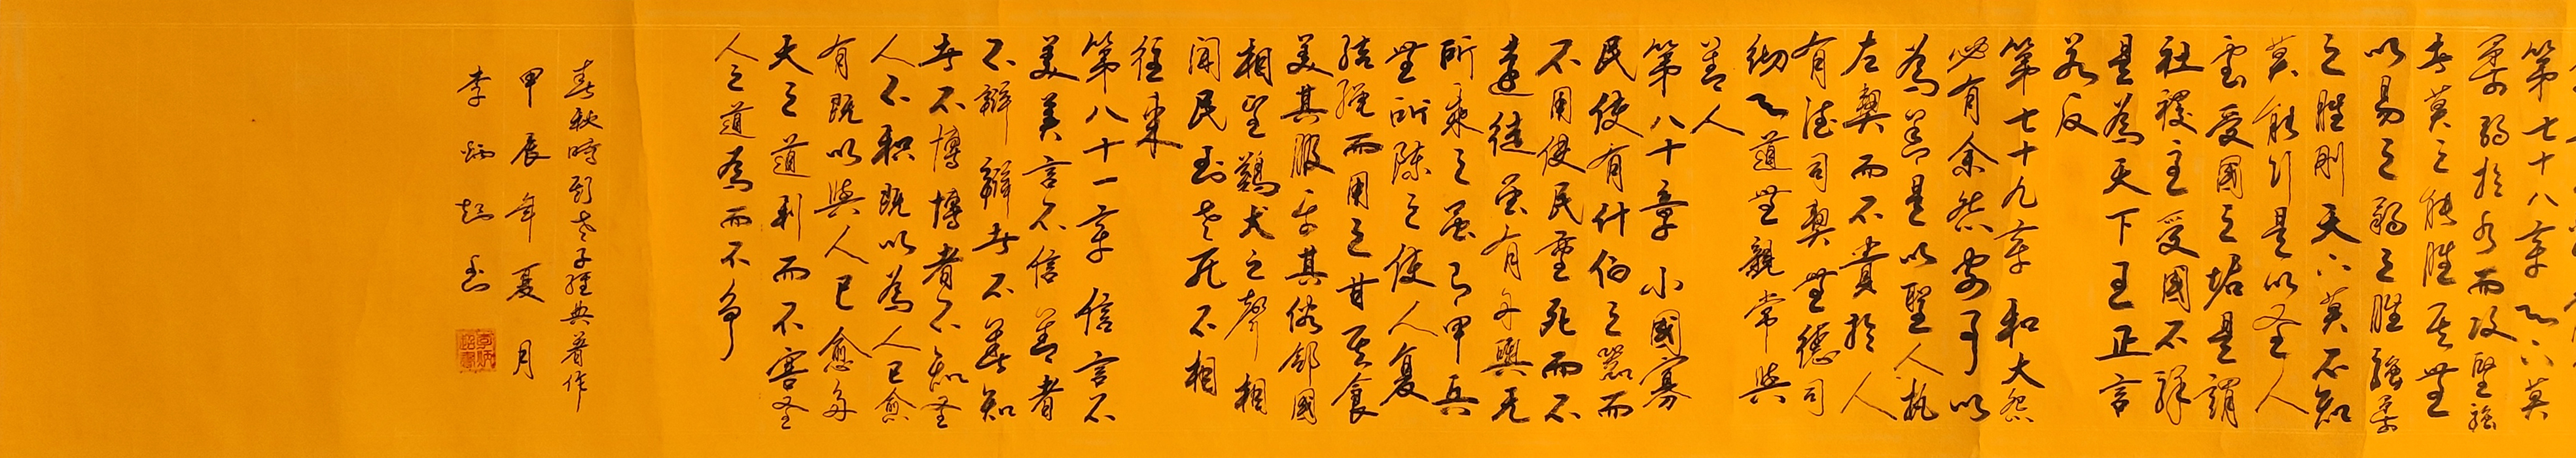 第七十八章 天下莫
柔弱於水而攻堅強
者莫之能勝其無
以易之弱之勝強柔
之勝剛天下莫不知
莫能行是以聖人
云受國之垢是謂
社稷主受國不祥
是為天下王正言
若反
第七十九章 和大怨
必有余怨安可以
為善是以聖人執
左契而不責於人
有德司契無德司
徹天道無親常與
善人
第八十章 小國寡
民使有什伯之器而
不用使民重死而不
遠徙虽有舟輿无
所乘之虽有甲兵
無所陳之使人復
結繩而用之甘其食
美其服樂其俗鄰國
相望鷄犬之聲相
聞民至老死不相
往來
第八十一章 信言不
美美言不信善者
不辯辯者不善知
者不博博者不知聖
人不积既以為人己愈
有既以與人己愈多
天之道利而不害聖
人之道為而不争
春秋時期老子經典著作
甲辰年夏月
李炳 书